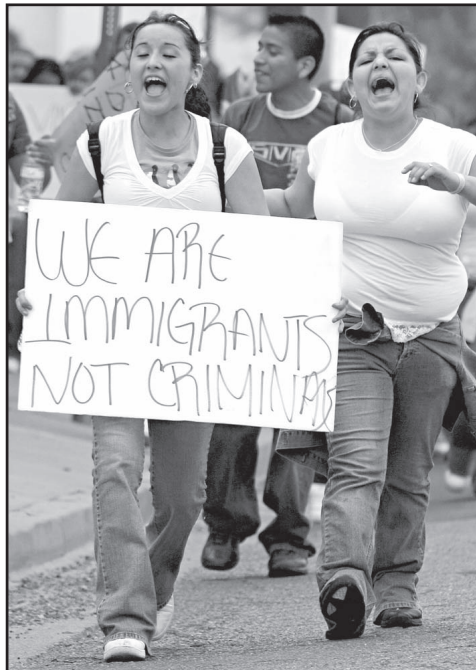 WE ARE
IMMIGRANTS
NOT CRIMINALS